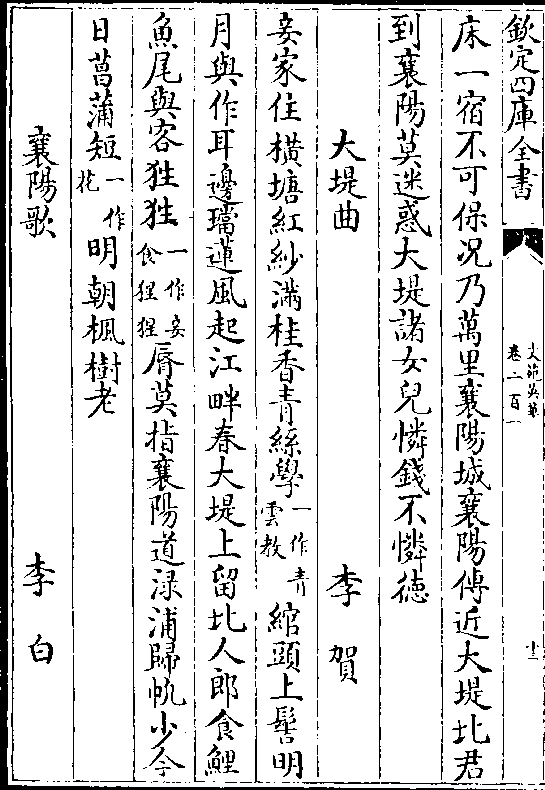 欽定四庫全書
文苑英華
卷二百一
十二
床一宿不可保况乃萬里襄陽城襄陽傳近大堤北君
到襄陽莫迷惑大堤諸女兒憐錢不憐德
大堤曲
李賀
妾家住橫塘紅紗滿桂香青絲學一作青雲教綰頭上髻明
月與作耳邊璫蓮風起江畔春大堤上留北人郎食鯉
魚尾與客狌狌一作妾食猩猩脣莫指襄陽道渌浦歸帆少今
日菖蒲短一作花明朝楓樹老
襄陽歌
李白